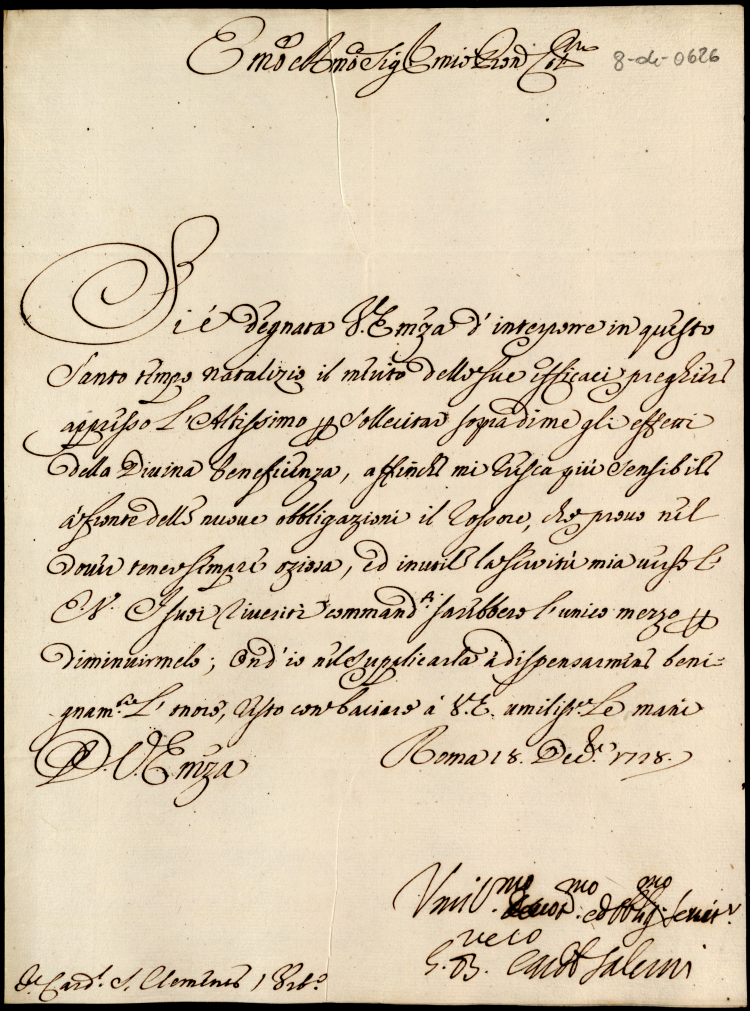 Emo e Rmo Sig.r mio Pron Col.mo
8-di-0626
Si è degnata V. Emza d'interporre in questo
Santo tempo natalizio il merito delle sue efficaci preghiere
appresso l'Altissimo p sollecitar sopra di me gli effetti
della Divina beneficienza, affinche mi riesca più sensibile
à fronte delle nuove obbligazioni il rossore, che provo nel
dover tener sempre oziosa, ed inutile la servitù mia verso l'
E.V. I suoi riveriti command.ti sarebbero l'unico mezzo p
diminuirmelo; Ond'io nel supplicarla à dispensarmene beni-
gnam.te l'onore, resto con baciare à V.E. umiliss.te le mani
D. V. Emza
Roma 18. Dec.bre 1728.
Umil.mo devot.mo ed obblig.mo servit.r
vero
G. B. Card. Salerni
S.r Card. S. Clemente